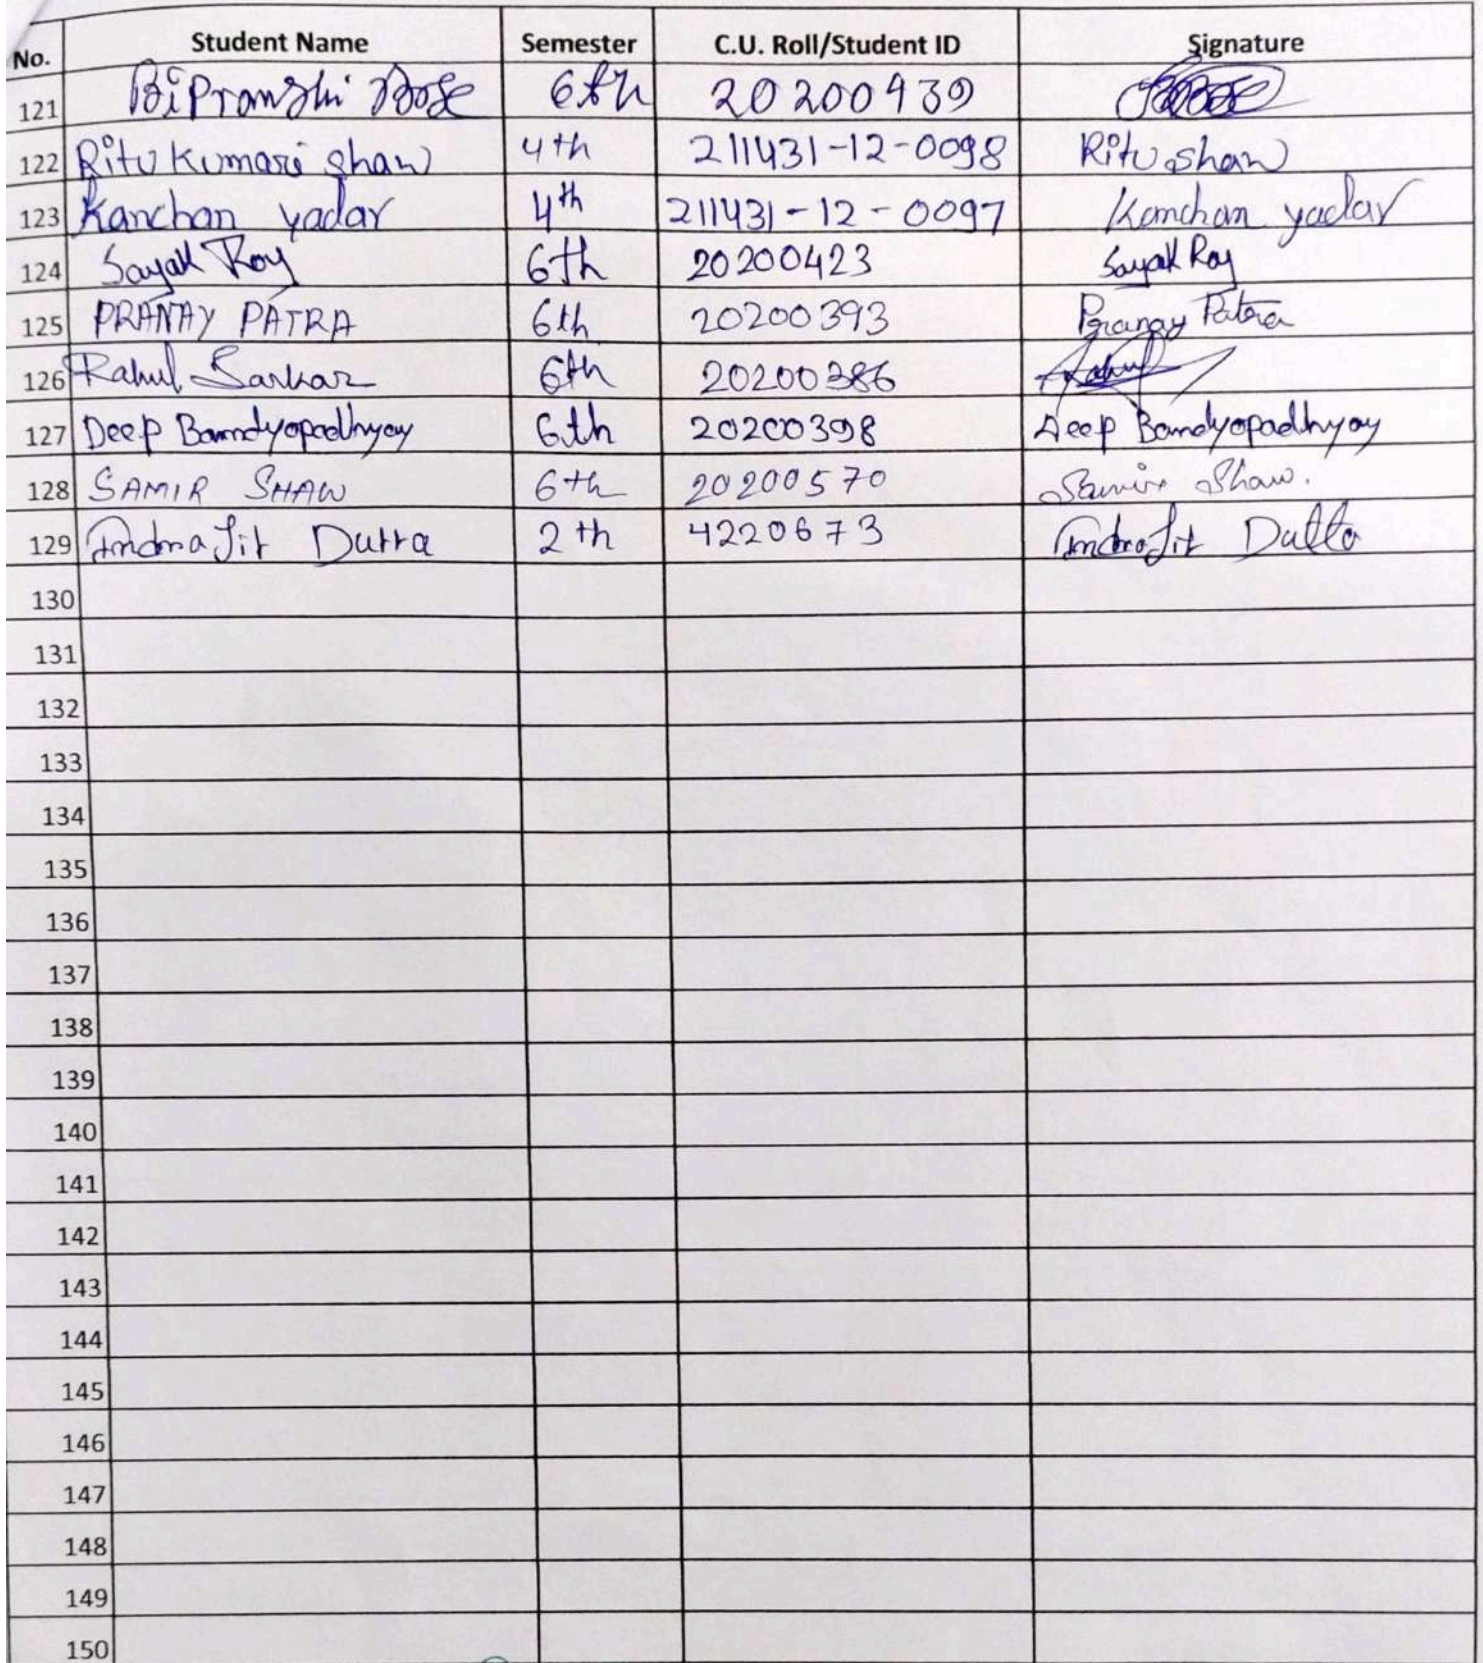 No. Student Name Semester C.U. Roll/Student ID Signature
121 BiPranshi Bose 6th 20200939
122 Ritu Kumari Shaw 4th 211431-12-0098 Ritu Shaw
123 Kanchan yadav 4th 211431-12-0097 Kanchan yadav
124 Sayak Roy 6th 20200423 Sayak Roy
125 PRANAY PATRA 6th 20200393 Pranay Patra
126 Rahul Sarkar 6th 20200386 Rahul
127 Deep Bandyopadhyay 6th 20200398 Deep Bandyopadhyay
128 SAMIR SHAW 6th 20200570 Samir Shaw.
129 IndraJit Dutta 2th 4220673 IndraJit Dutta
130
131
132
133
134
135
136
137
138
139
140
141
142
143
144
145
146
147
148
149
150